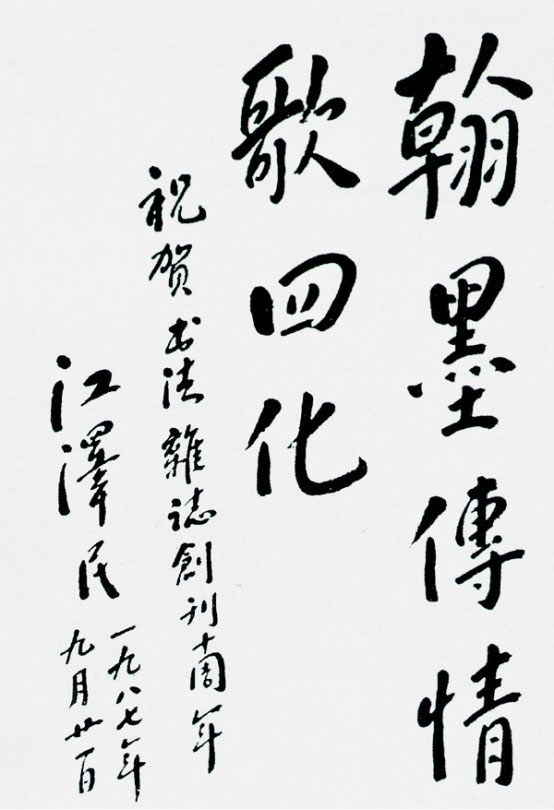 翰墨傳情
歌四化
祝贺书法雜誌創刊十周年
江澤民
一九八七年
九月廿一日